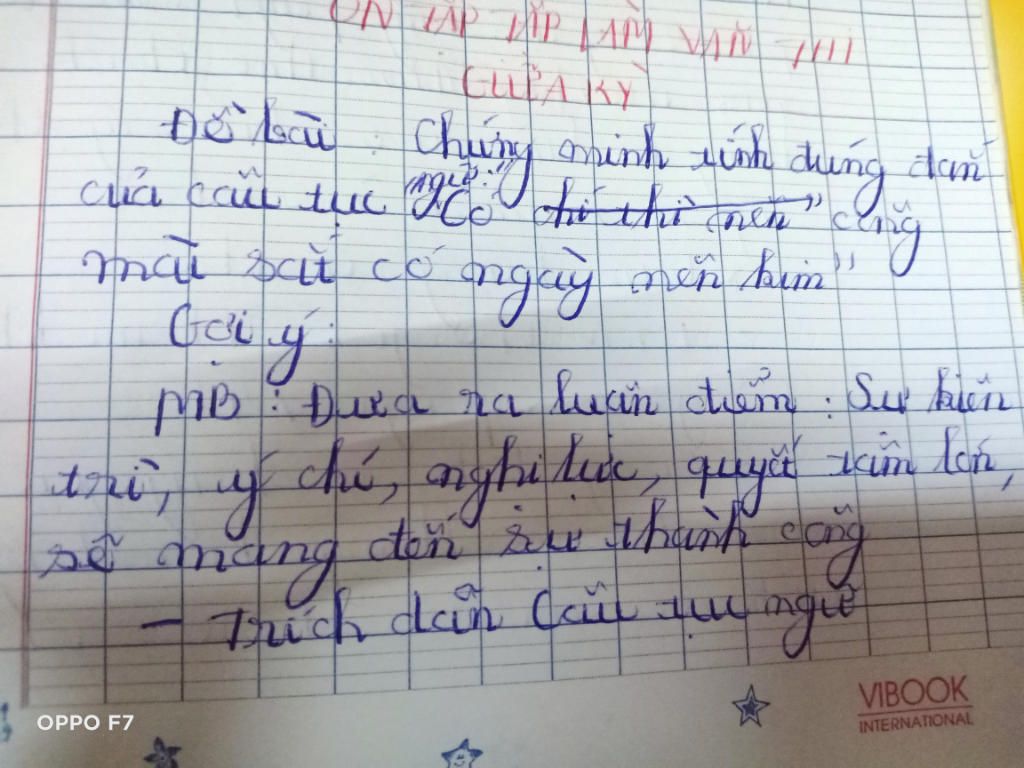 ÔN TẬP TẬP LÀM VĂN THI
GIỮA KỲ
Đề bài : Chứng minh tính đúng đắn
của câu tục ngữ: "Có chí thì nên" công
mài sắt có ngày nên kim"
Gợi ý:
MB : Đưa ra luận điểm : Sự kiên
trì, ý chí, nghị lực, quyết tâm lớn,
sẽ mang đến sự thành công
- Trích dẫn câu tục ngữ
VIBOOK
INTERNATIONAL
OPPO F7